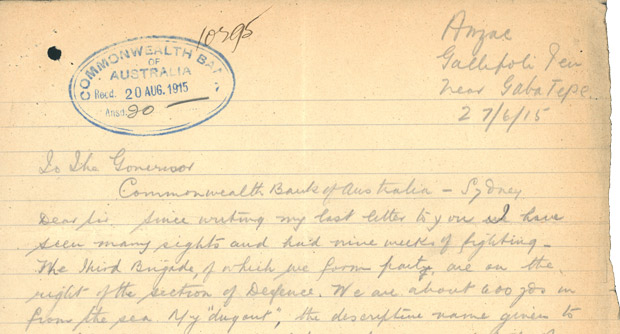 10795
COMMONWEALTH BANK
OF
AUSTRALIA
Recd. 20 AUG. 1915
Ansd. 20
Anzac
Gallipoli Pen
near Gaba Tepe
27/6/15
To The Governor
Commonwealth Bank of Australia - Sydney
Dear Sir Since writing my last letter to you I have
seen many sights and had nine weeks of fighting -
The Third Brigade, of which we form part, are on the
right of the section of Defence. We are about 600 yds in
from the sea. My "dugout", the discriptive name given to